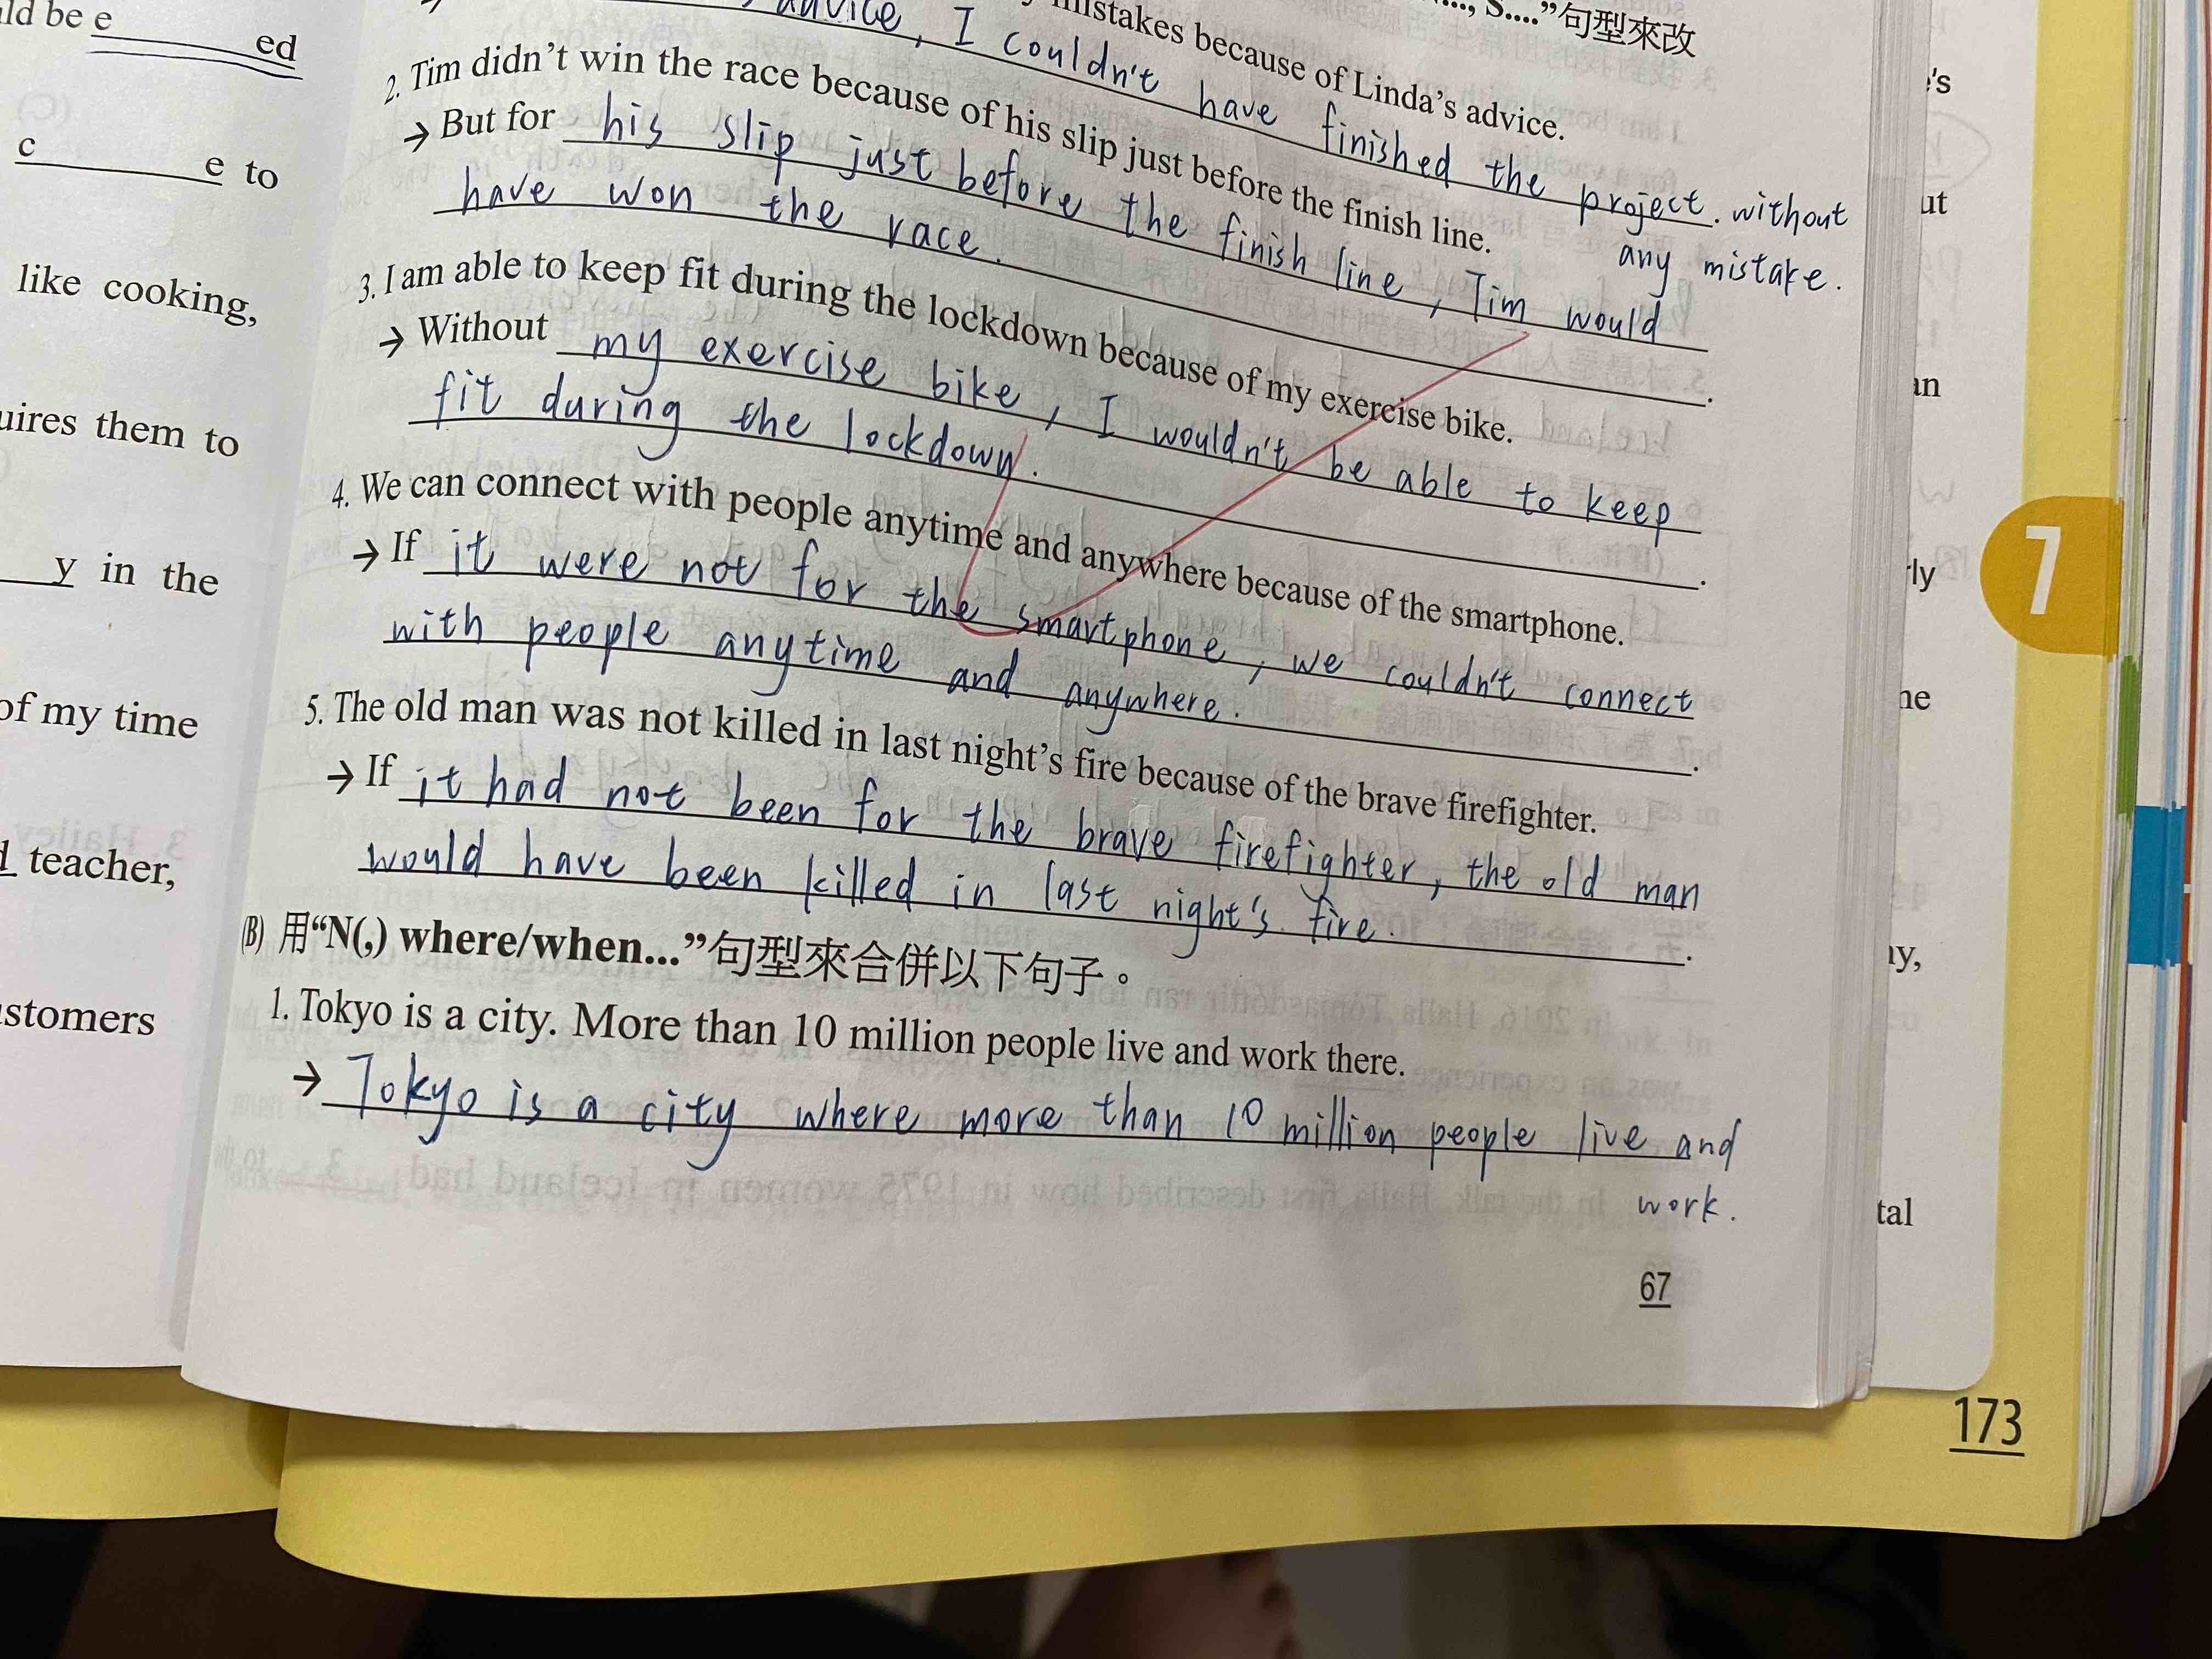 ld be e ed
c e to
like cooking,
uires them to
y in the
of my time
teacher,
stomers
S....”句型來改
mistakes because of Linda’s advice.
advice, I couldn't have finished the project. without
any mistake.
2. Tim didn’t win the race because of his slip just before the finish line.
→ But for his slip just before the finish line, Tim would
have won the race.
3. I am able to keep fit during the lockdown because of my exercise bike.
→ Without my exercise bike, I wouldn't be able to keep
fit during the lockdown.
4. We can connect with people anytime and anywhere because of the smartphone.
→ If it were not for the smartphone, we couldn't connect
with people anytime and anywhere.
5. The old man was not killed in last night’s fire because of the brave firefighter.
→ If it had not been for the brave firefighter, the old man
would have been killed in last night's fire.
(B) 用“N(,) where/when...”句型來合併以下句子。
1. Tokyo is a city. More than 10 million people live and work there.
→ Tokyo is a city where more than 10 million people live and
work.
67
7
173